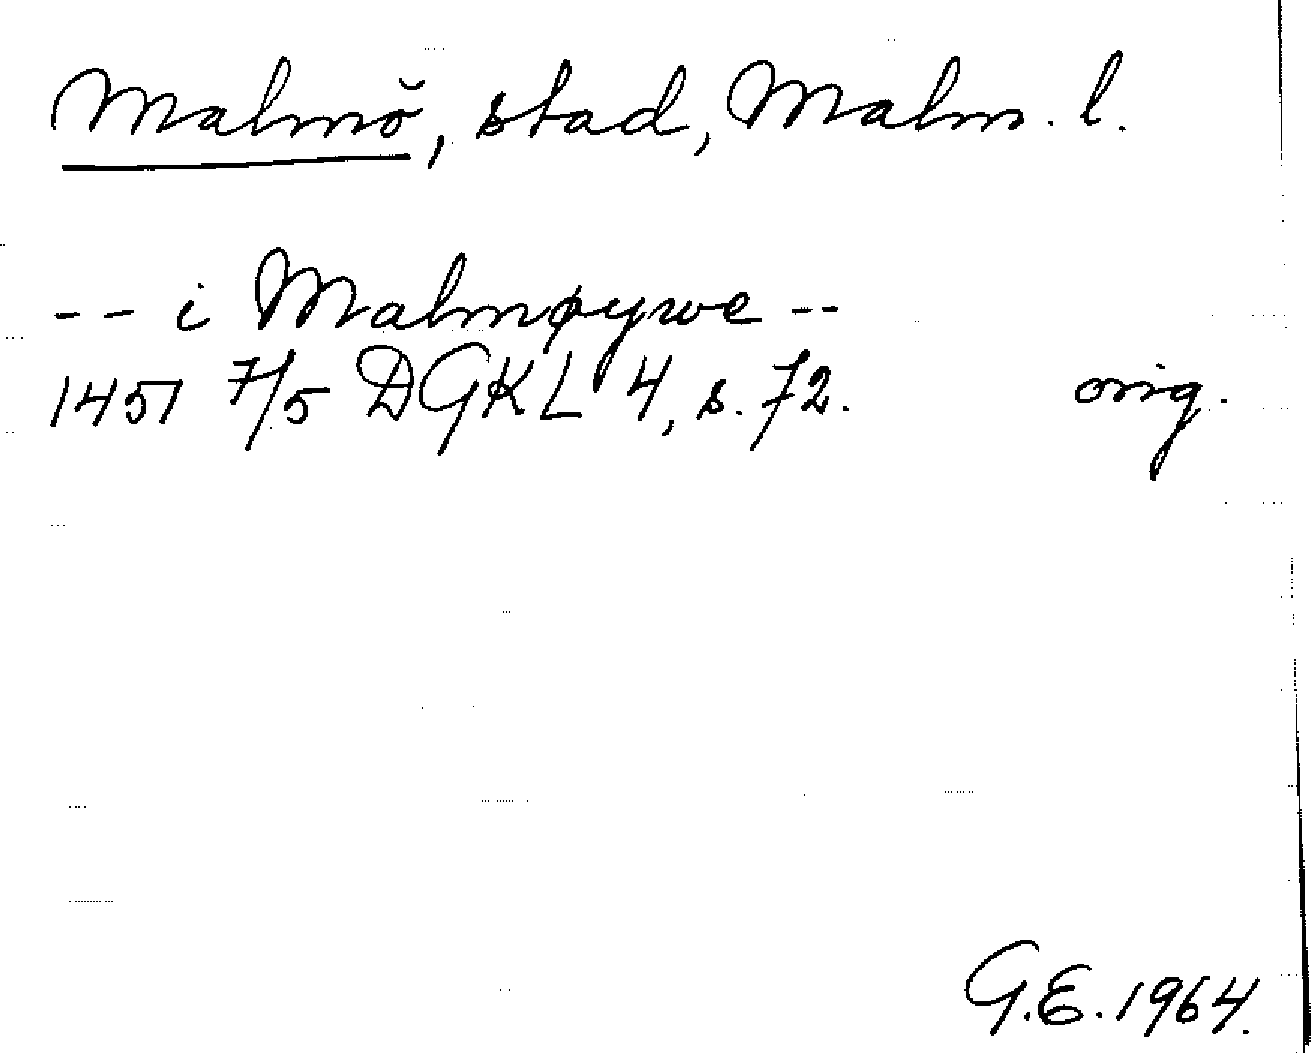 Malmö, stad, Malm. l.
-- i Malmøywe --
1451 7/5 DGKL 4, s. 72. orig.
G.E. 1964.